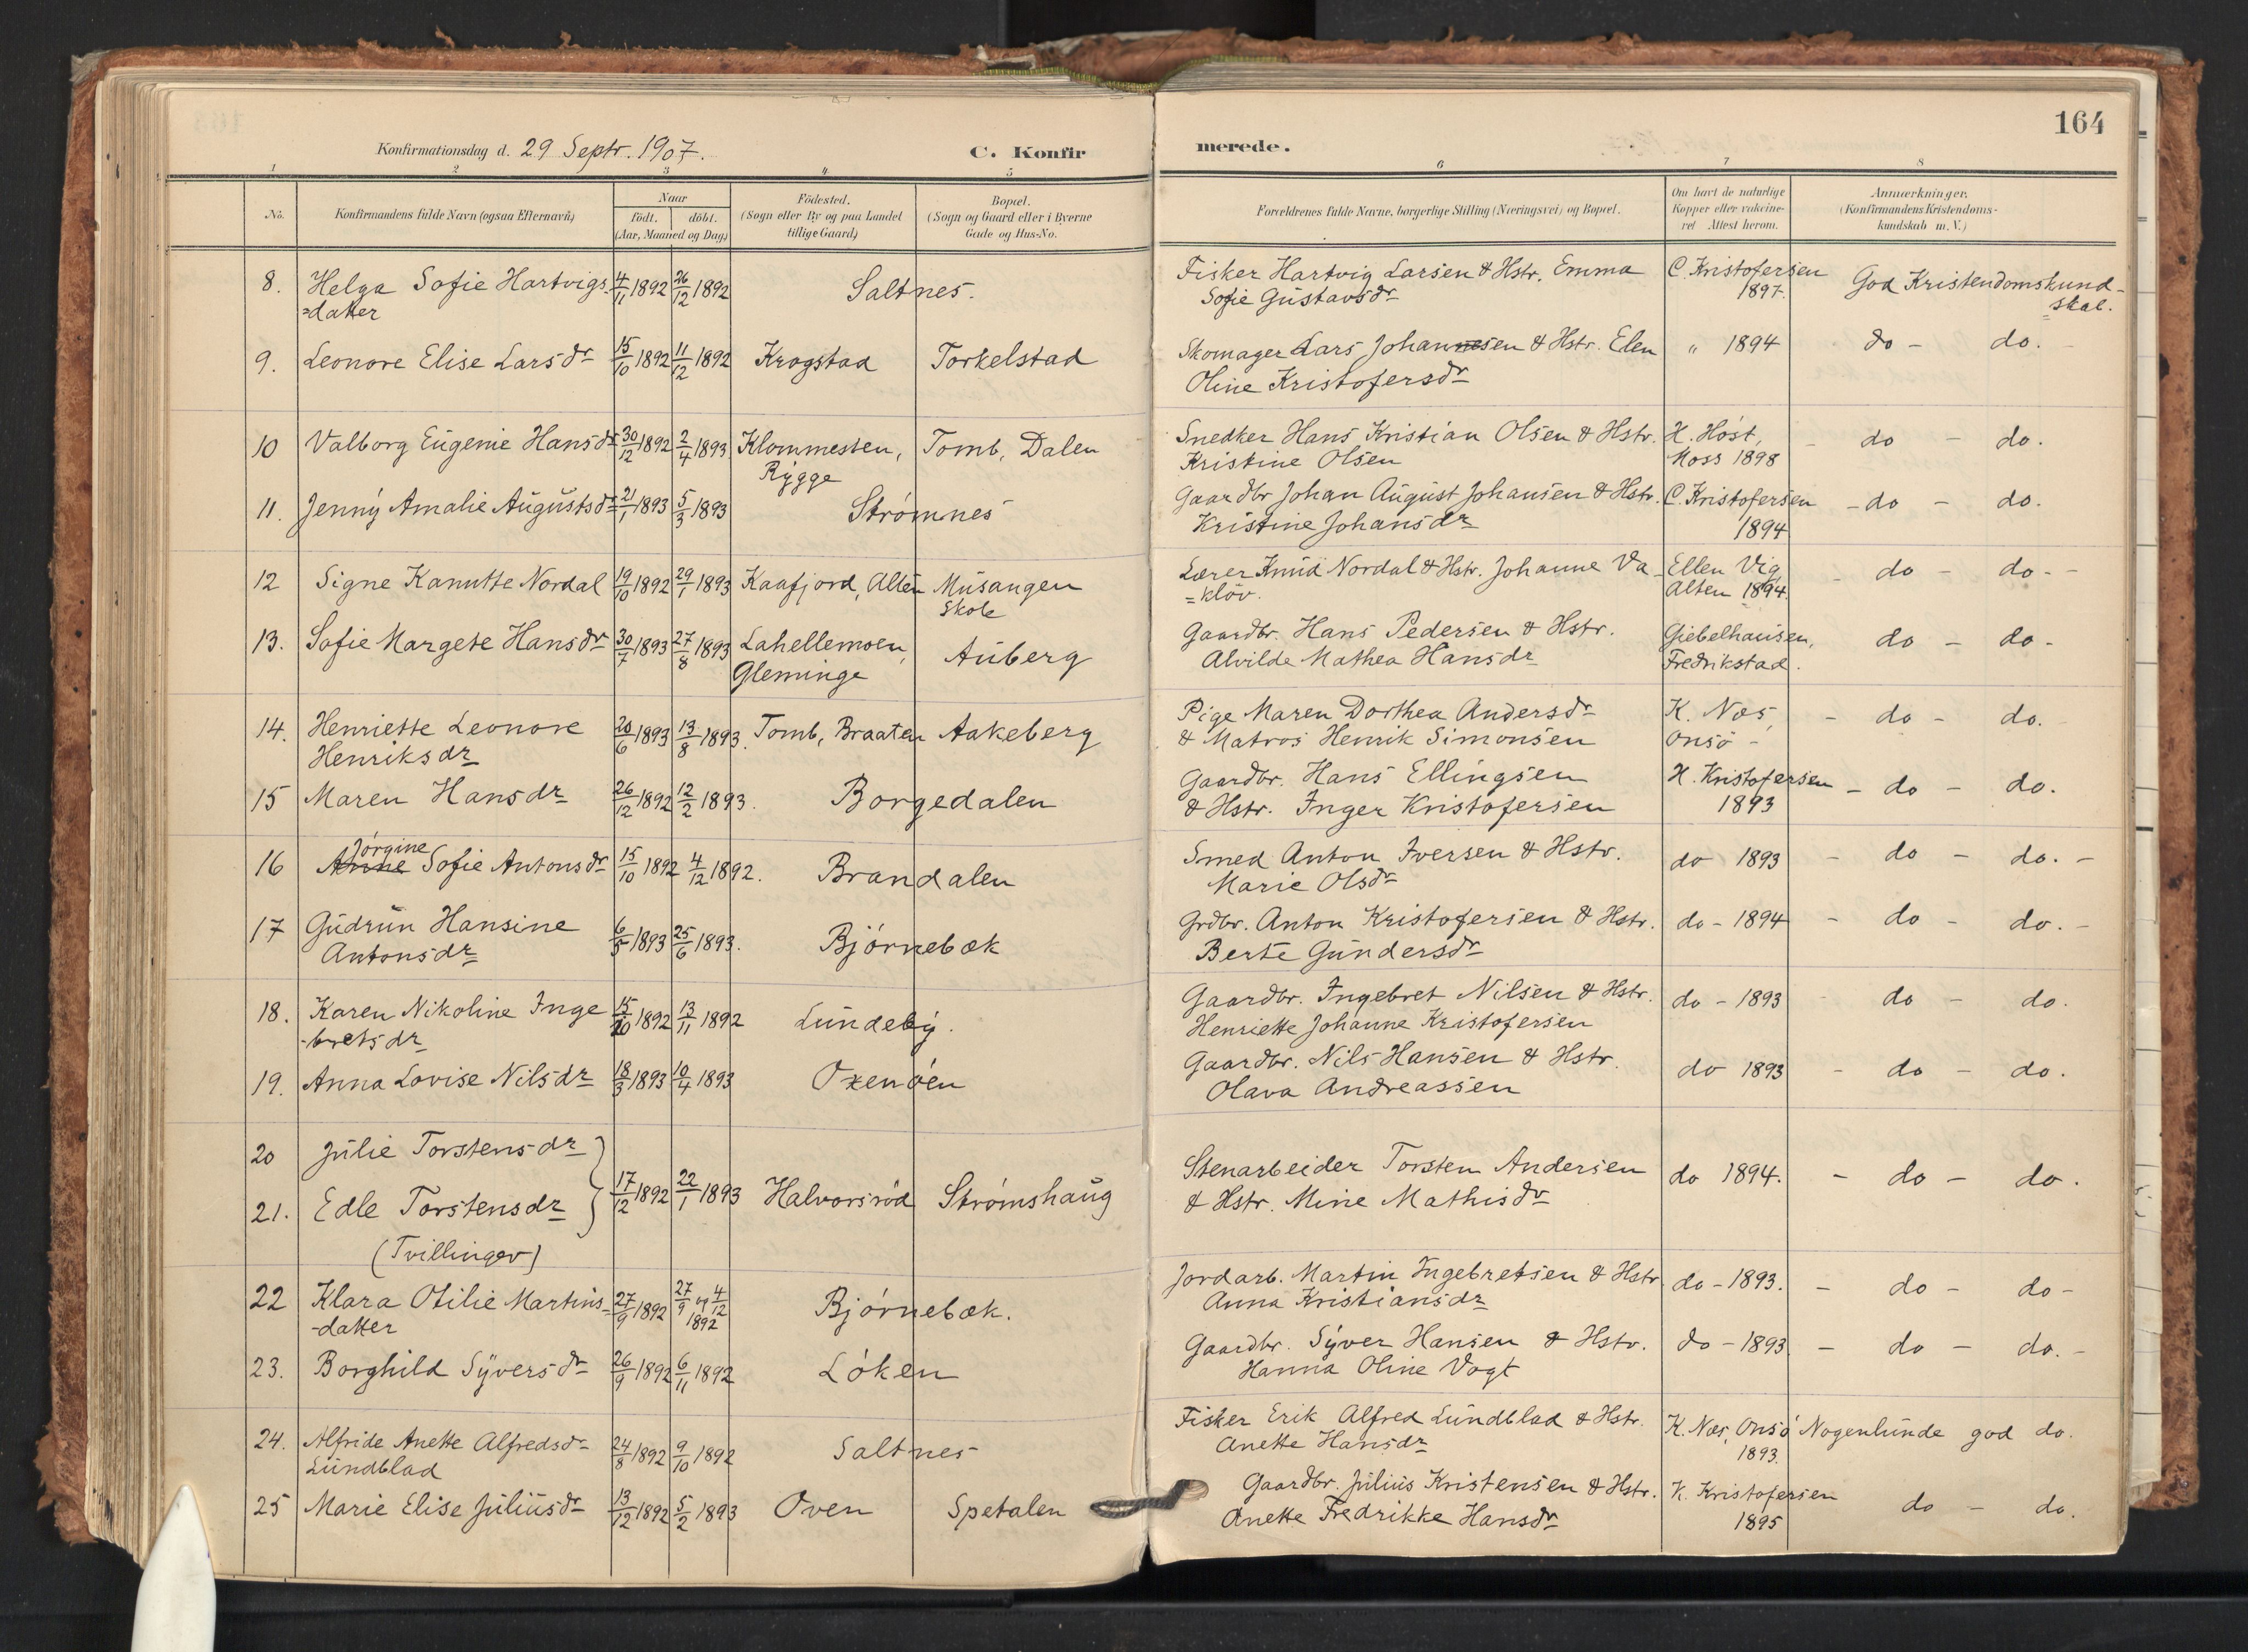 164
Konfirmationsdag d. 29 Septr. 1907.
C. Konfirmerede.
1 2 3 4 5 6 7 8
No.
Konfirmandens fulde Navn (ogsaa Efternavn)
Naar
födt.
döbt.
(Aar, Maaned og Dag)
Födested.
(Sogn eller By og paa Landet
tillige Gaard)
Bopæl.
(Sogn og Gaard eller i Byerne
Gade og Hus-No.
Forældrenes fulde Navne, borgerlige Stilling (Næringsvei) og Bopæl.
Om havt de naturlige
Kopper eller vakcine-
ret Attest herom.
Anmærkninger.
(Konfirmandens Kristendoms-
kundskab m. V.)
8. Helga Sofie Hartvigs- 4/11 1892 26/12 1892 Saltnes. Fisker Hartvig Larsen & Hstr. Emma C. Kristofersen God Kristendomskund-
=datter Sofie Gustavsdr 1897. =skab.
9. Leonore Elise Larsdr 15/10 1892 11/12 1892 Krogstad Torkelstad Skomager Lars Johannesen & Hstr. Elen " 1894 do - do.
Oline Kristofersdr
10 Valborg Eugenie Hansdr 30/12 1892 2/4 1893 Klommesten, Tomb, Dalen Snedker Hans Kristian Olsen & Hstr. H. Høst, - do - do.
Rygge Kristine Olsen Moss 1898
11. Jenny Amalie Augustsdr 21/1 1893 5/3 1893 Strømnes Gaardbr Johan August Johansen & Hstr. C. Kristofersen - do - do.
Kristine Johansdr 1894
12 Signe Kanutte Nordal 19/10 1892 29/1 1893 Kaafjord, Alten Musangen Lærer Knud Nordal & Hstr. Johanne Va- Ellen Vig, - do - do -
Skole =klöv. Alten 1894.
13. Sofie Margete Hansdr 30/7 1893 27/8 1893 Lahellemoen, Auberg Gaardbr. Hans Pedersen & Hstr. Giebelhausen, do - do -
Gleminge Alvilde Mathea Hansdr Fredrikstad.
14. Henriette Leonore 20/6 1893 13/8 1893. Tomb, Braaten Aakeberg Pige Maren Dorthea Andersdr K. Næs, - do - do.
Henriksdr & Matros Henrik Simonsen Onsö -
15 Maren Hansdr 26/12 1892 12/2 1893. Borgedalen Gaardbr. Hans Ellingsen H. Kristofersen - do - do.
& Hstr. Inger Kristofersen 1893
Jörgine
16 Anne Sofie Antonsdr 15/10 1892 4/12 1892. Brandalen Smed Anton Iversen & Hstr. do 1893 - do - do. -
Marie Olsdr
17 Gudrun Hansine 6/5 1893 25/6 1893. Bjørnebæk Grdbr. Anton Kristofersen & Hstr. do - 1894 - do - do. -
Antonsdr Berte Gundersdr
18. Karen Nikoline Inge 15/10 1892 13/11 1892 Lundeby. Gaardbr. Ingebret Nilsen & Hstr. do - 1893 - do - do.
-bretsdr Henriette Johanne Kristofersen
19. Anna Lovise Nilsdr 18/3 1893 10/4 1893 Oxenøen Gaardbr. Nils Hansen & Hstr. do 1893 - do - do.
Olava Andreassen
20 Julie Torstensdr
21. Edle Torstensdr 17/12 1892 22/1 1893 Halvorsrød Strømshaug Stenarbeider Torsten Andersen do 1894. - do - do.
(Tvillinger) & Hstr. Mine Mathisdr
22 Klara Otilie Martins- 27/9 1892 27/9 og 4/12 1892 Bjørnebæk. Jordarb. Martin Ingebretsen & Hstr do - 1893. - do - do -
-datter Anna Kristiansdr
23. Borghild Syversdr 26/9 1892 6/11 1892 Løken Gaardbr. Syver Hansen & Hstr. do - 1893. - do - do. -
Hanna Oline Vogt
24. Alfride Anette Alfredsdr 24/8 1892 9/10 1892 Saltnes Fisker Erik Alfred Lundblad & Hstr. K. Næs, Onsö Nogenlunde god do.
Lundblad Anette Hansdr 1893.
25 Marie Elise Juliusdr 13/12 1892 5/2 1893 Oven Spetalen Gaardbr. Julius Kristensen & Hstr. K. Kristofersen do - do.
Anette Fredrikke Hansdr 1895